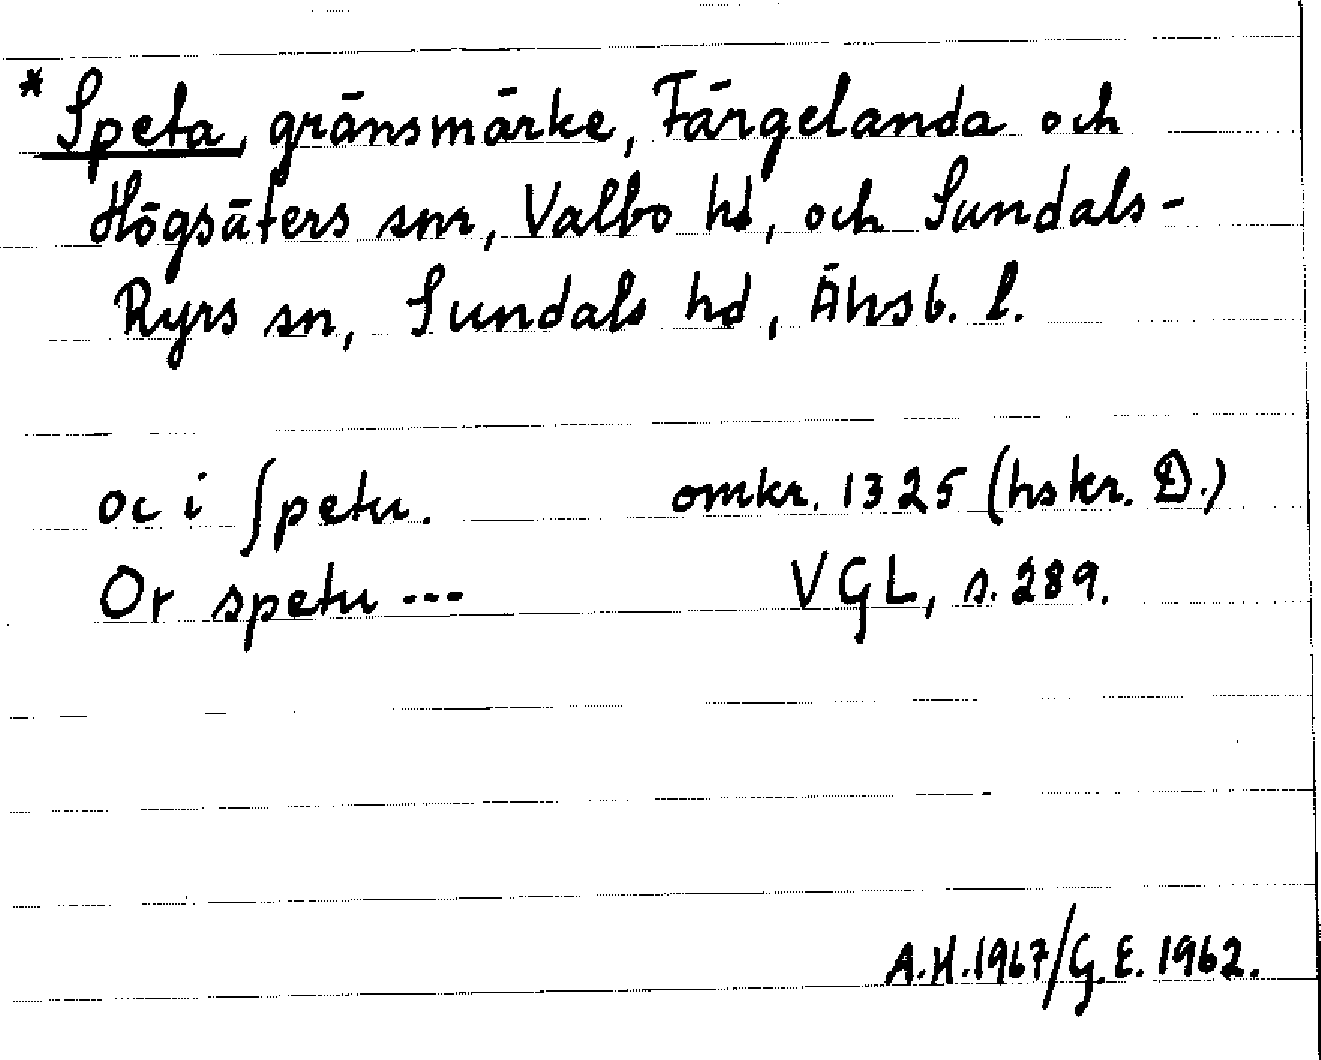 * Speta, gränsmärke, Färgelanda och
Högsäters snr, Valbo hd, och Sundals-
Ryrs sn, Sundals hd, Älvsb. l.
oc i ſpetu. omkr. 1325 (hskr. D.)
Or spetu --- VGL, s. 289.
A.H.1967/G.E. 1962.